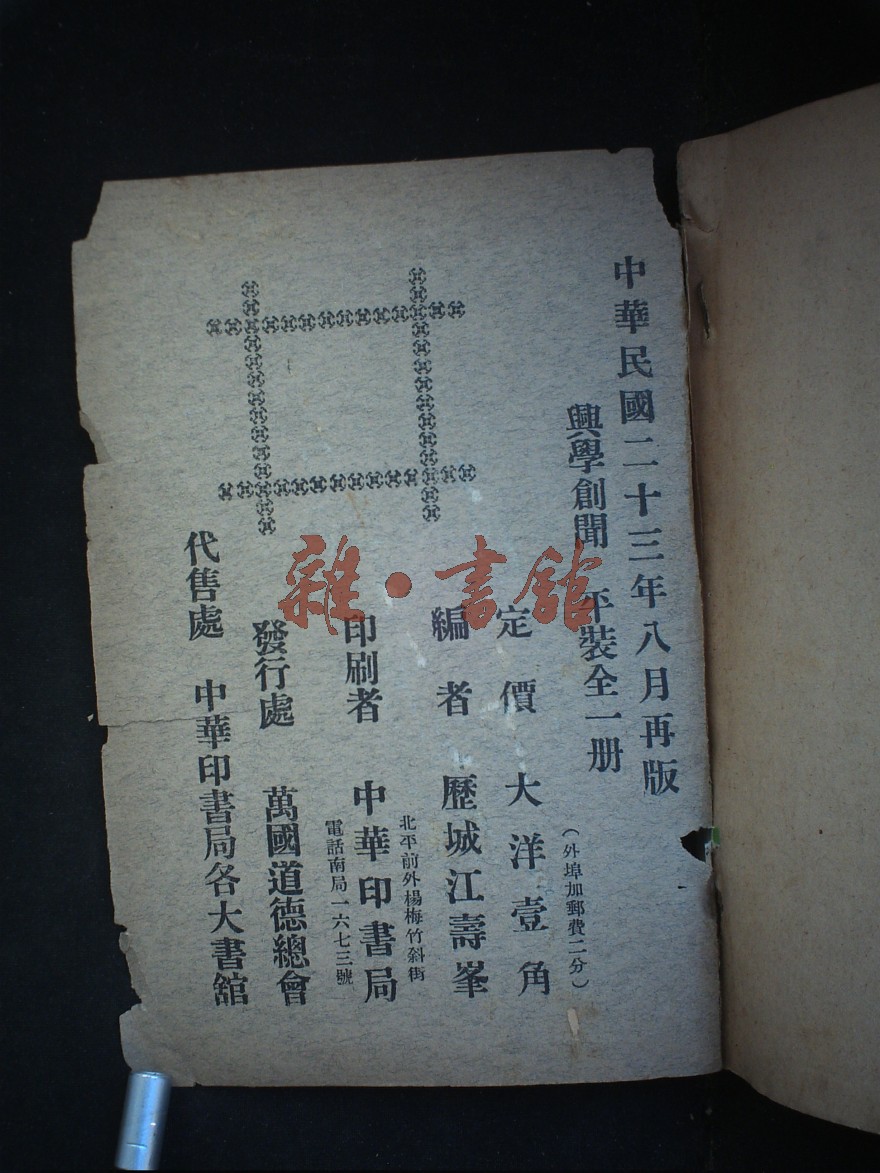 中華民國二十三年八月再版
興學創聞 平裝全一册
定價 大洋壹角
(外埠加郵費二分)
編者 歷城江壽峯
印刷者 中華印書局
北平前外楊梅竹斜街
電話南局一六七三號
發行處 萬國道德總會
代售處 中華印書局各大書舘
雜·書舘